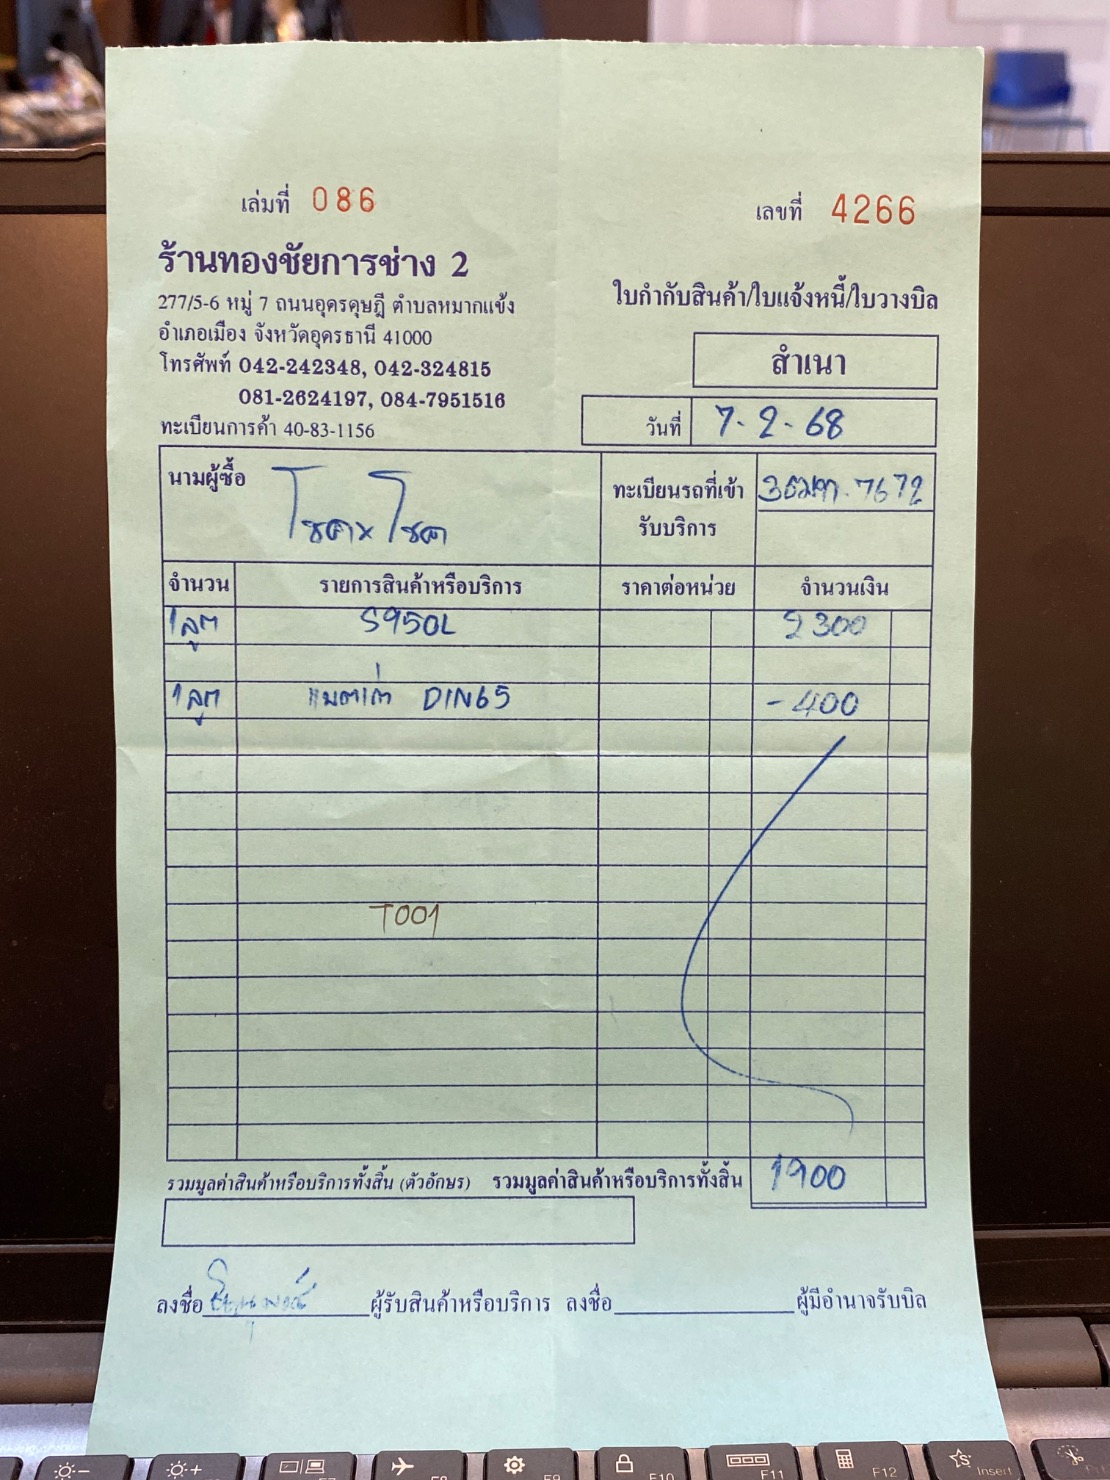 เล่มที่ 086
เลขที่ 4266
ร้านทองชัยการช่าง 2
277/5-6 หมู่ 7 ถนนอุดรดุษฎี ตำบลหมากแข้ง
อำเภอเมือง จังหวัดอุดรธานี 41000
โทรศัพท์ 042-242348, 042-324815
081-2624197, 084-7951516
ทะเบียนการค้า 40-83-1156
ใบกำกับสินค้า/ใบแจ้งหนี้/ใบวางบิล
สำเนา
วันที่ 7-2-68
นามผู้ซื้อ โชคxโชค
ทะเบียนรถที่เข้า
รับบริการ
7672
จำนวน รายการสินค้าหรือบริการ ราคาต่อหน่วย จำนวนเงิน
1 ลูก S950L 2300
1 ลูก แบตเก่า DIN65 -400
T001
รวมมูลค่าสินค้าหรือบริการทั้งสิ้น (ตัวอักษร) รวมมูลค่าสินค้าหรือบริการทั้งสิ้น 1900
ลงชื่อ ผู้รับสินค้าหรือบริการ ลงชื่อ ผู้มีอำนาจรับบิล
F7 F8 F9 F10 F11 F12 Insert